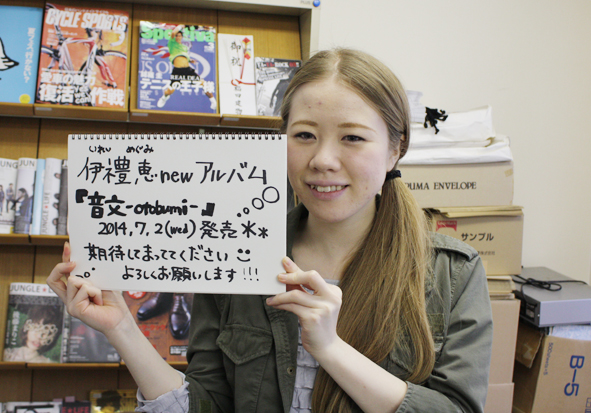 CYCLE SPORTS
Sportiva
REAL IDEAL
テニスの王子様
復活大作戦
御祝
いれい めぐみ
伊禮 恵 new アルバム
『音文-otobumi-』
2014,7,2(wed) 発売**
期待しまっててください
よろしくお願いします!!!
JUNGLE
JUNGLE
JUNGLE
UMA ENVELOPE
サンプル
B-5